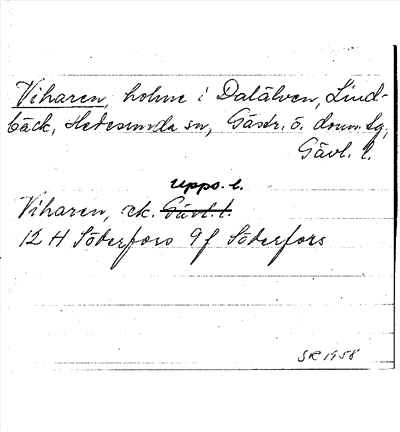 Viharen, holme i Dalälven, Lind-
bäck, Hedesunda sn, Gästr. ö. doms.g,
Gävl. l.
Upps. l.
Viharen, ek. Gävl. l.
12 H Söderfors 9 f Söderfors
SR 1958